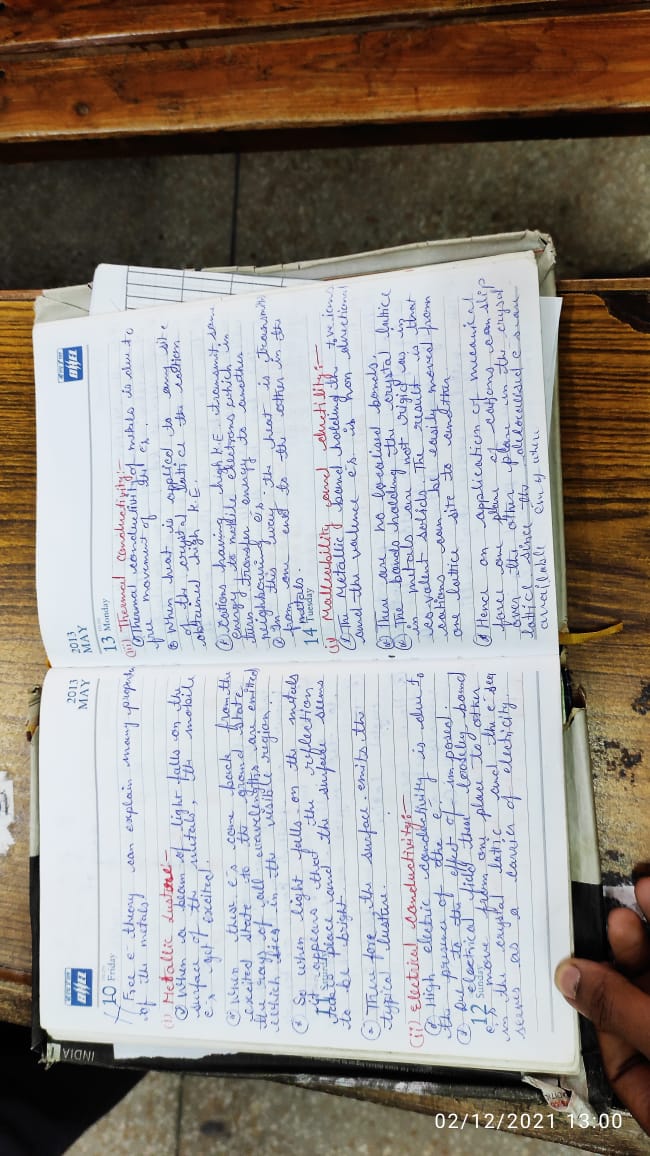 2013
MAY
10 Friday
Free e- theory can explain many
of the metals
(i) Metallic Lustre:-
when a beam of light falls on the
surface of the metals, the mobile
e-s get excited.
when this e-s come back from the
excited state to the ground state
the rays of all wavelengths are emitted
which lies in the visible region.
So when light falls on the metals
it appears that the reflection
take place and the surface seems
to be bright
Therefore, the surface emits the
typical lustre.
(ii) Electrical conductivity:-
High electric conductivity is due to
the presence of the e-
Due to the effect of imposed
12 Sunday
electrical field these loosely bond
e-s move from one place to other
in the crystal lattic and the e- sea
seems as a carrier of electricity.
INDIA
2013
MAY
13 Monday
(iii) Thermal conductivity:-
Thermal conductivity of metals is due to
free movement of the e-s.
when heat is applied to any site
of the crystal lattice the cation
obtained high K.E.
Cations having high K.E. transmit some
energy to mobile electrons which in
turn transfer energy to another
neighbouring e-s.
In this way the heat is transmit
from one end to the other in the
metals.
14 Tuesday
Malleability and ductility:-
The Metallic bond holding the +ve ions
and the valence e-s is non directional
There are no localised bonds.
The bonds holding the crystal lattice
in metals are not rigid as in
co-valent solids. The result is that
cations can be easily moved from
one lattice site to another
Hence on application of mecanical
force one plane of cations can slip
over the other plane in the crysal
lattice since the delocalised e- s are
available every where
02/12/2021 13:00